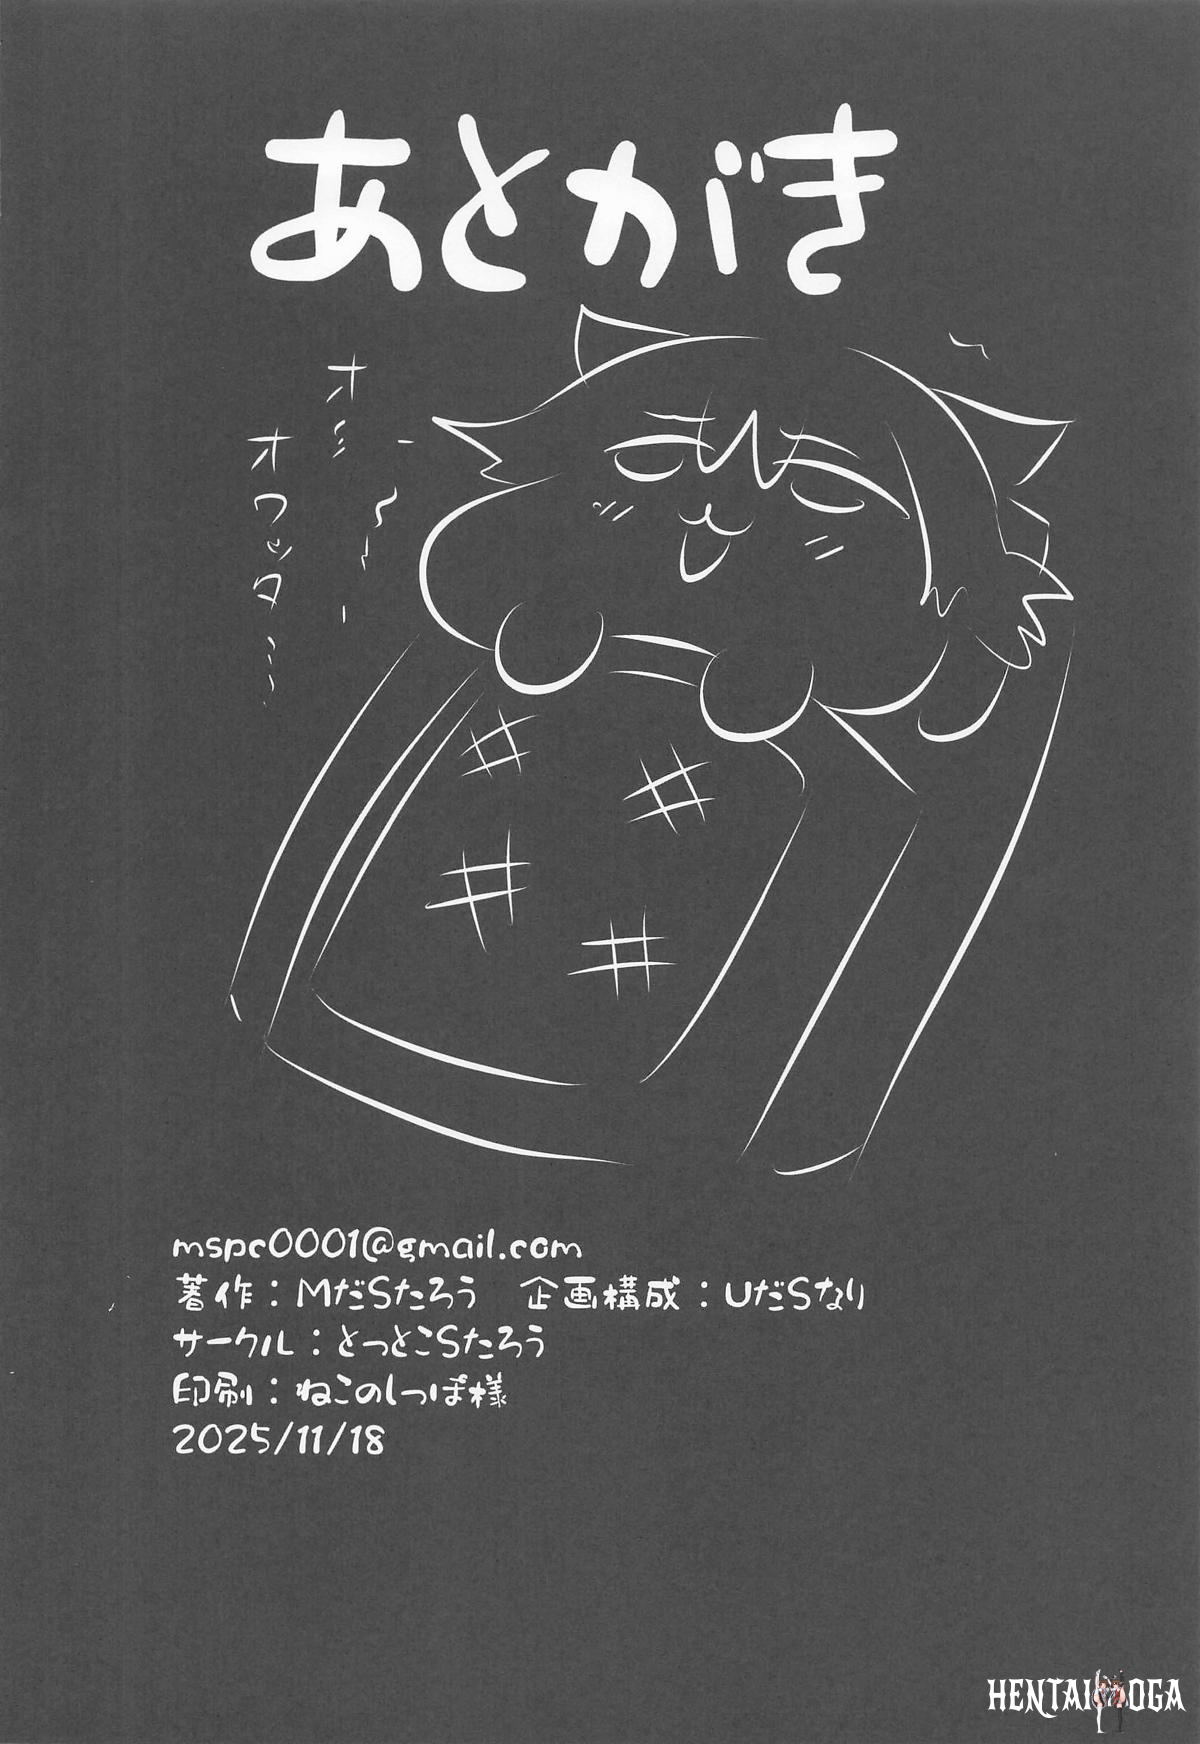 あとがき
オミ
オワッタ…
mspc0001@gmail.com
著作：MだSたろう　企画構成：UだSなり
サークル：とっとこSたろう
印刷：ねこのしっぽ様
2025/11/18
HENTAI OGA